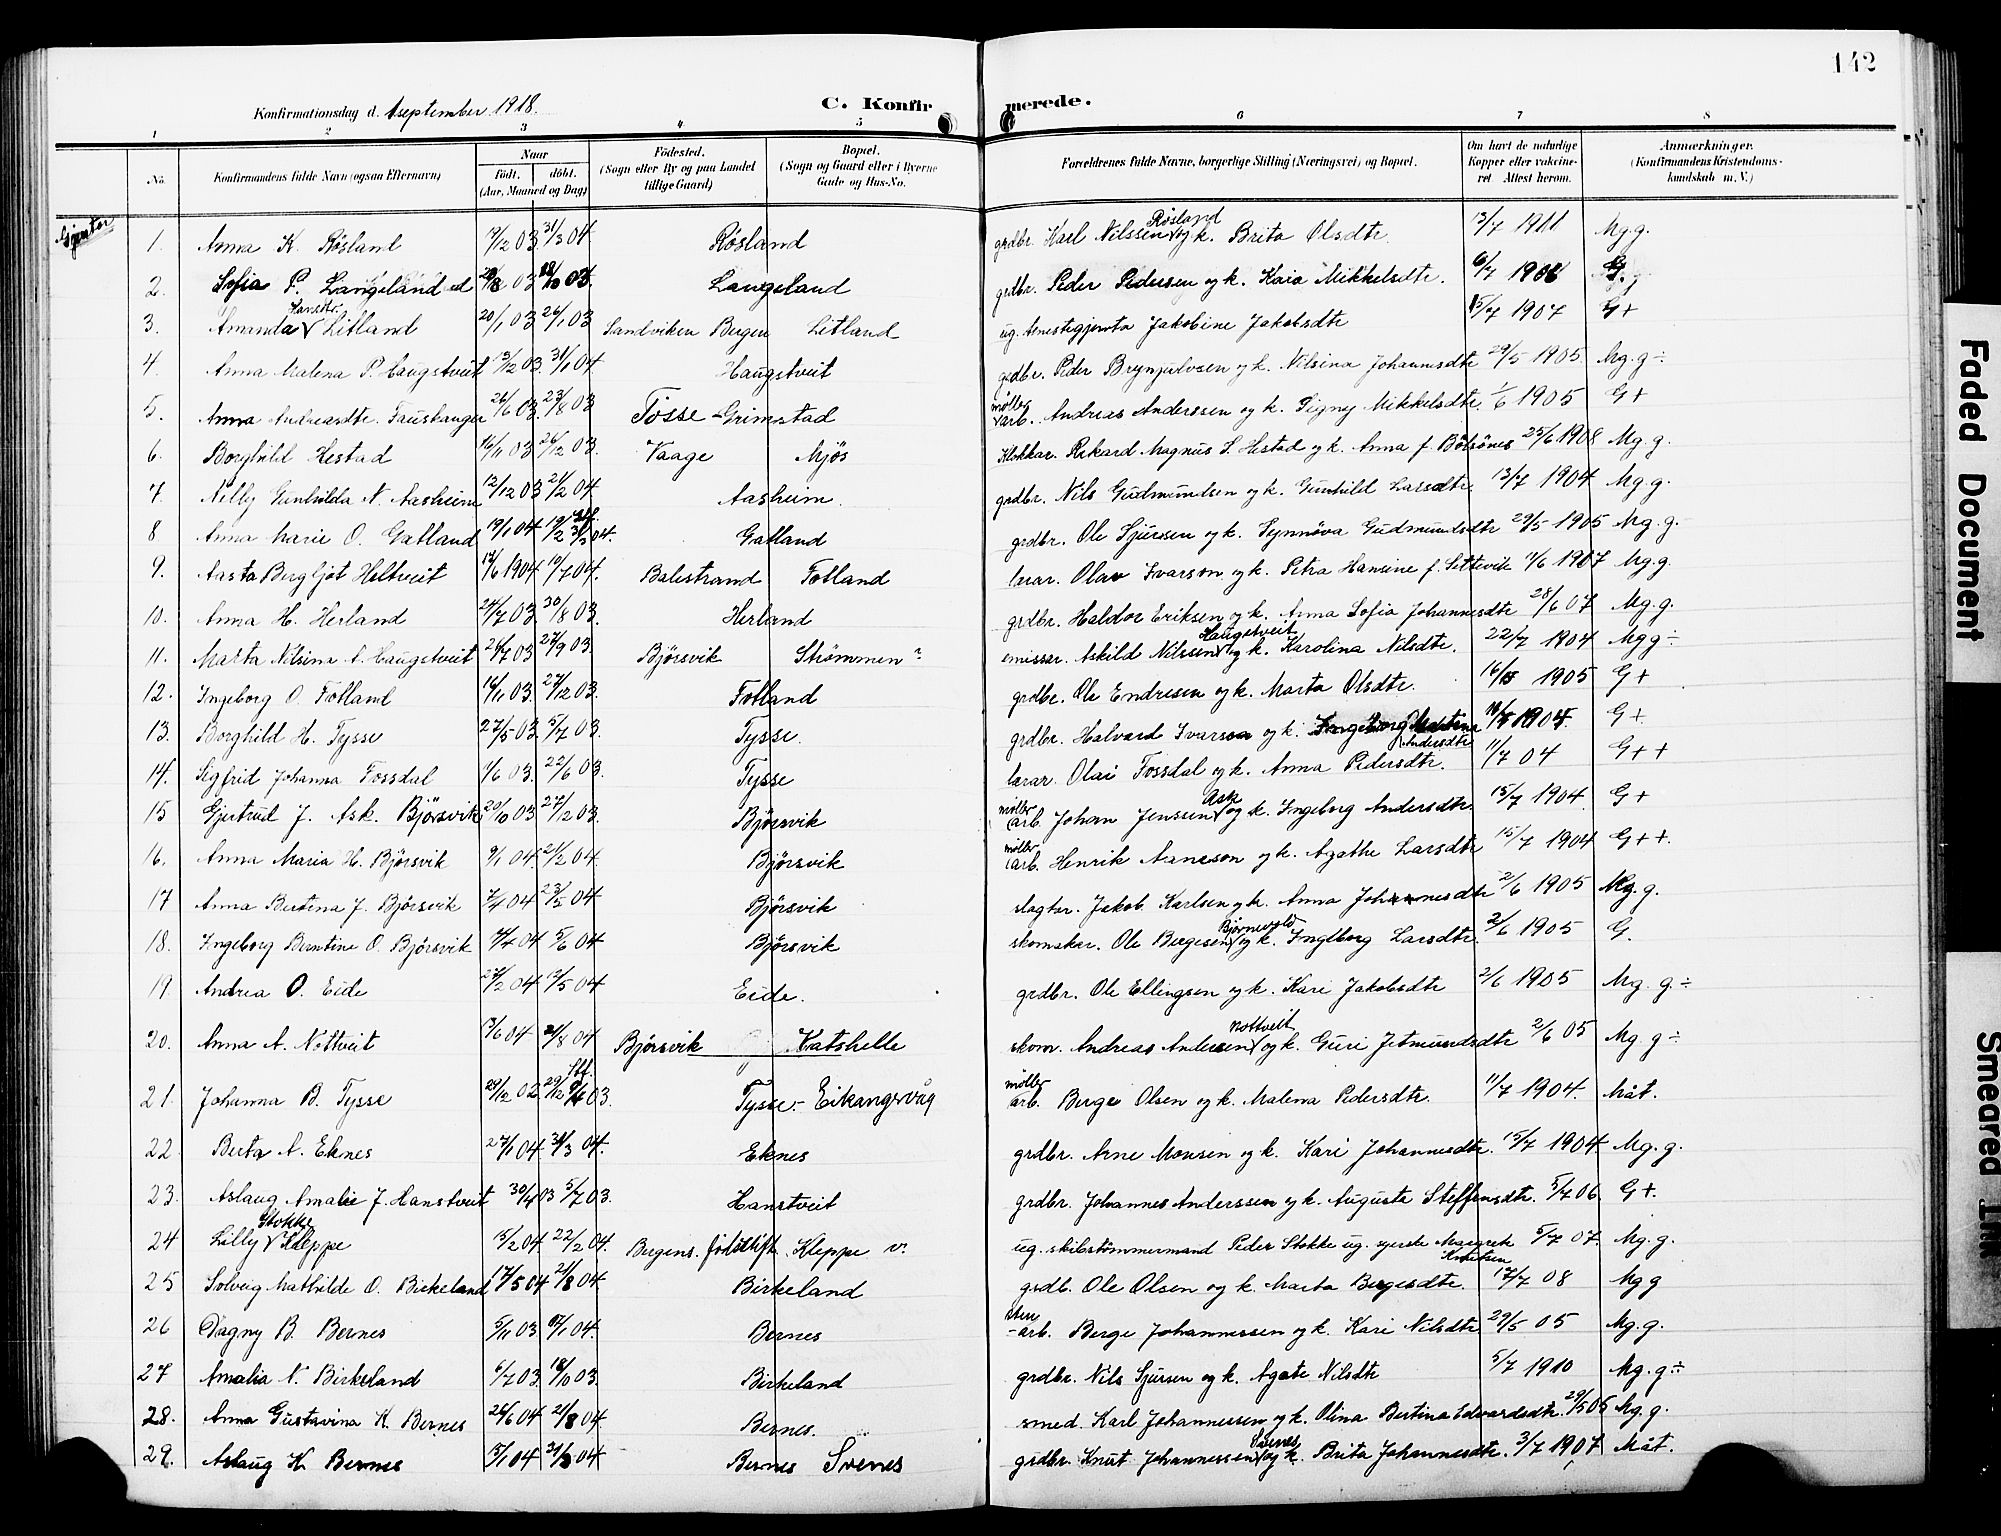 142
Konfirmationsdag d. 1 september 1918. C. Konfirmerede.
1 2 3 4 5 6 7 8
No. Konfirmandens fulde Navn (ogsaa Efternavn) Naar födt. döbt. (Aar, Maaned og Dag) Födested. (Sogn eller By og paa Landet tillige Gaard) Bopæl. (Sogn og Gaard eller i Byerne Gade og Hus-No. Forældrenes fulde Navne, borgerlige Stilling (Næringsvei) og Bopæl. Om havt de naturlige Kopper eller vakcineret Attest herom. Anmærkninger. (Konfirmandens Kristendomskundskab m. V.)
Gjentor
1. Anna K. Røsland 19/12 03 31/3 04 Røsland grdbr. Karl Nilssen Røsland og k. Brita Olsdtr. 13/7 1911 Mg.g.
2. Sofia P. Langeland 03 03. Langeland grdbr. Peder Pedersen og k. Kaia Mikkelsdtr. 6/7 1908 G.
3. Amanda Hansdtr. Litland 20/1 03 26/1 03 Sandviken Bergen Litland ug. tenestegjenta Jakobine Jakobsdtr 15/7 1907 G+
4. Anna Malena P. Haugstveit 13/12 03. 31/1 04 Haugstveit grdbr. Peder Brynjulvsen og k. Nilsina Johannesdtr 29/5 1905. Mg.g÷
5. Anna Andreasdtr. Fauskanger 26/6 03. 23/8 03 Tosse - Grimstad møller arb. Andreas Anderssen og k. Signy Mikkelsdtr. 1/6 1905 G+
6. Borghild Hestad 16/11 03. 26/12 03. Vaage Mjös Klokkar. Rikard Magnus S. Hestad og k. Anna f. Bolsönes 25/6 1908 Mg.g.
7. Nelly Gunhilda N. Aasheim 12/12 03 21/2 04 Aasheim. grdbr. Nils Gudmundsen og k. Gunhild Larsdtr. 13/7 1904 Mg.g.
8 Anna Marie O. Gatland 19/1 04 19/2 04. Gatland grdbr. Ole Sjurssen og k. Synnöva Gudmundsdtr 29/5 1905 Mg.g.
9. Aasta Bergljot Holtveit 17/6 1904 10/7 04. Balestrand Fotland lærar. Olav Ivarson og k. Petra Hansine f. 11/6 1907 Mg.g.
10. Anna H. Herland 24/7 03. 30/8 03. Herland grdbr. Haldor Eriksen og k. Anna Sofia Johannesdtr 28/6 07 Mg.g.
11. Marta Nilsina A. Haugstveit 26/7 03 27/9 03. Björsvik Strömmen n. emissær. Askild Nilssen Haugstveit og k. Karolina Nilsdtr. 22/7 1904 Mg g÷
12. Ingeborg O. Fotland 16/11 03. 27/12 03. Fotland grdbr. Ole Endresen og k. Marta Olsdtr. 1905 G+
13. Borghild H. Tysse 27/5 03. 5/7 03. Tysse. grdbr. Halvard Ivarson og k. Ingeborg Martina Andersdtr 1904. G+
14. Sigfrid Johanna Fossdal 1/6 03. 22/6 03. Tysse lærar. Olai Fossdal og k. Anna Pedersdtr. 11/7 04 G++
15 Gjertrud J. Ask. Björsvik. 20/10 03 27/12 03. Björsvik møller arb. Johan Jenssen Ask og k. Ingeborg Andersdtr. 15/7 1904. G+
16. Anna Maria H. Björsvik 9/1 04. 21/2 04. Björsvik møller arb. Henrik Arneson og k. Agathe Larsdtr 15/7 1904 G++.
17 Anna Bertina J. Björsvik 7/4 04 23/5 04 Björsvik slagtar. Jakob Karlsen og k. Anna Johannesdtr 2/6 1905 Mg.g.
18. Ingeborg Berntine O. Björsvik 04 5/6 04 Björsvik skomakar. Ole Bergesen Bjørnevold og k. Ingeborg Larsdtr. 2/6 1905 G.
19. Andrea O. Eide 27/2 04 12/5 04 Eide. grdbr. Ole Ellingsen og k. Kari Jakobsdtr 2/6 1905 Mg. g.÷
20. Anna A. Nottveit 13/6 04 21/8 04 Björsvik Katshelle skom. Andreas Andersen Nottveit og k. Guri Jetmundsdtr 2/6 05 Mg.g÷
21. Johanna B. Tysse 29/12 02. 29/12 Stf. 03. Tysse - Eikangervåg møller arb. Berge Olsen og k. Malena Pedersdtr. 11/7 1904. Måt.
22 Berta A. Eknes 27/1 04. 31/3 04. Eknes grdbr. Arne Monsen og k. Kari Johannesdtr. 15/7 1904. Mg.g.
23. Aslaug Amalie J. Hanstveit 30/4 03 5/7 03. Hanstveit grdbr. Johannes Anderssen og k. Augusta Steffensdtr. 5/7 06. G+.
24 Lilly Stokke Kleppe 15/2 04. 22/2 04. Bergens fødselstift. Kleppe v. ug. skibstömmermand Peder Stokke ug. syerske Margrete Knutsen 5/7 07. Mg.g.
25 Solveig Mathilde O. Birkeland 17/5 04 21/8 04. Birkeland grdb. Ole Olsen og k. Marta Bergesdtr. 17/7 08 Mg g
26 Dagny B. Bernes 5/11 03. 1/1 04. Bernes sten-arb. Berge Johannessen og k. Kari Nilsdtr 29/5 05 Mg.g.
27 Amalia N. Birkeland 6/7 03. 18/10 03. Birkeland grdbr. Nils Sjursen og k. Agate Nilsdtr 5/7 1910 Mg.g÷
28. Anna Gustavina K. Bernes 26/6 04 21/8 04 Bernes. smed. Karl Johannessen og k. Olina Bertina Edvardsdtr. 29/5 05 Mg.g.
29. Aslaug K Bernes 15/1 04 04 Bernes Svenes grdbr. Knut Johannessen Svenes og k. Brita Johannesdtr. 3/7 1907 Måt.
Faded Document
Smeared Ink